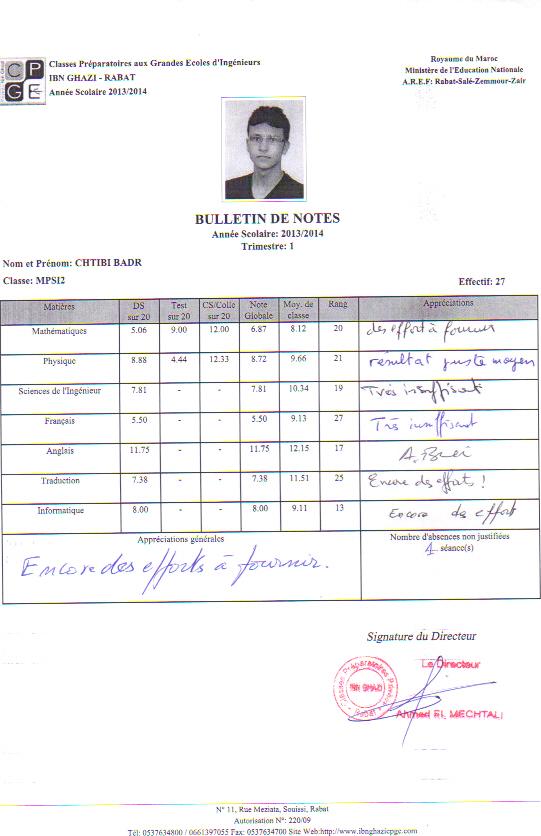 CPGE
Classes Préparatoires aux Grandes Ecoles d'Ingénieurs
IBN GHAZI - RABAT
Année Scolaire 2013/2014
Royaume du Maroc
Ministère de l'Education Nationale
A.R.E.F: Rabat-Salé-Zemmour-Zair
BULLETIN DE NOTES
Année Scolaire: 2013/2014
Trimestre: 1
Nom et Prénom: CHTIBI BADR
Classe: MPSI2
Effectif: 27
Matières DS sur 20 Test sur 20 CS/Colle sur 20 Note Globale Moy. de classe Rang Appréciations
Mathématiques 5.06 9.00 12.00 6.87 8.12 20 des effort à fournir
Physique 8.88 4.44 12.33 8.72 9.66 21 résultat juste moyen
Sciences de l'Ingénieur 7.81 - - 7.81 10.34 19 Très insuffisant
Français 5.50 - - 5.50 9.13 27 Très insuffisant
Anglais 11.75 - - 11.75 12.15 17 A. Bien
Traduction 7.38 - - 7.38 11.51 25 Encore des efforts !
Informatique 8.00 - - 8.00 9.11 13 Encore de effort
Appréciations générales
Encore des efforts à fournir.
Nombre d'absences non justifiées
1 séance(s)
Signature du Directeur
Le Directeur
IBN GHAZI
Ahmed EL MECHTALI
N° 11, Rue Meziata, Souissi, Rabat
Autorisation N°: 220/09
Tél: 0537634800 / 0661397055 Fax: 0537634700 Site Web:http://www.ibnghazicpge.com